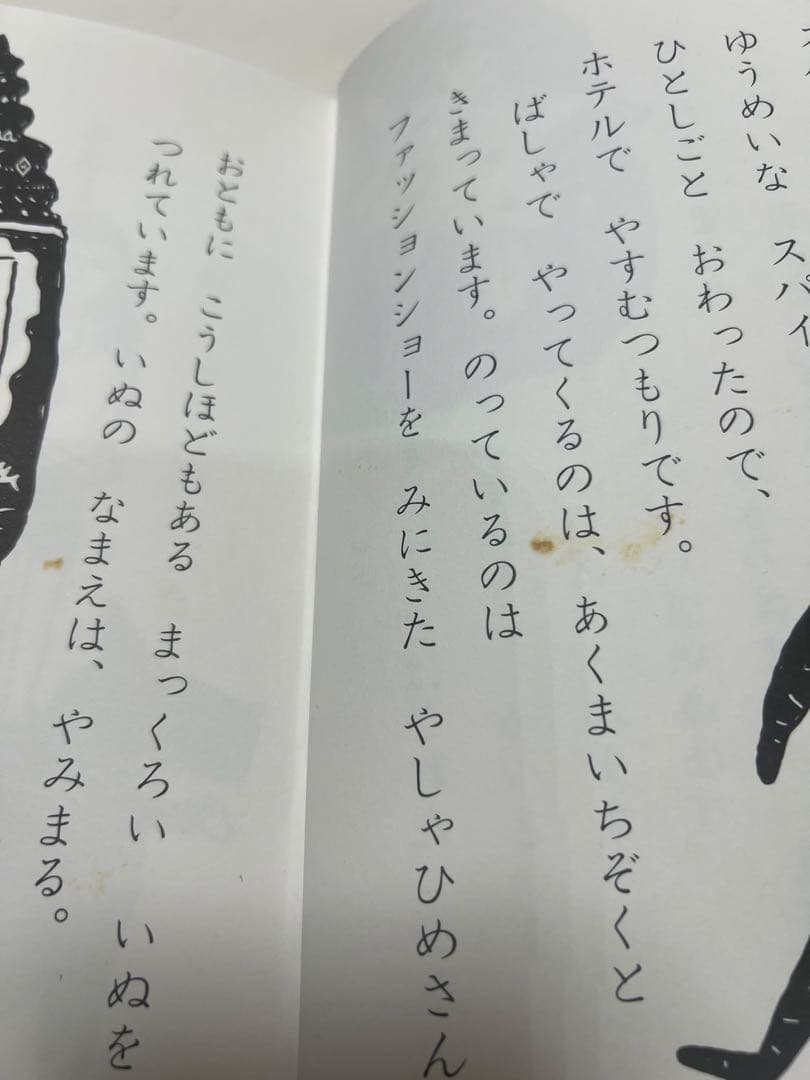 ゆうめいな　スパイ
ひとしごと　おわったので、
ホテルで　やすむつもりです。
ばしゃで　やってくるのは、あくまいちぞくと
きまっています。のっているのは
ファッションショーを　みにきた　やしゃひめさん
おともに　こうしほどもある　まっくろい　いぬを
つれています。いぬの　なまえは、やみまる。